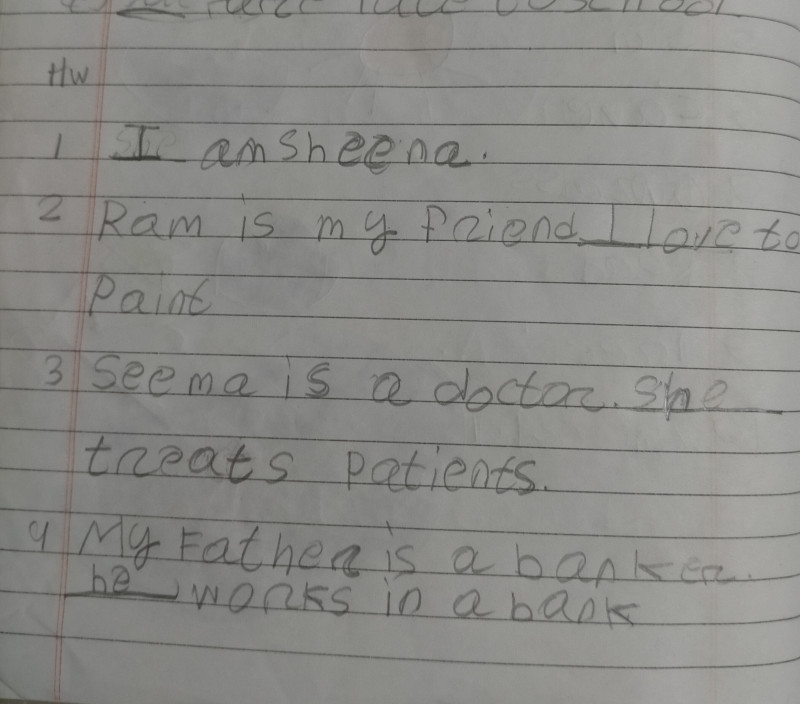 late to school.
HW
1 I am Sheena.
2 Ram is my friend I love to
Paint
3 Seema is a doctor. She
treats patients.
4 My Father is a banker.
he works in a bank